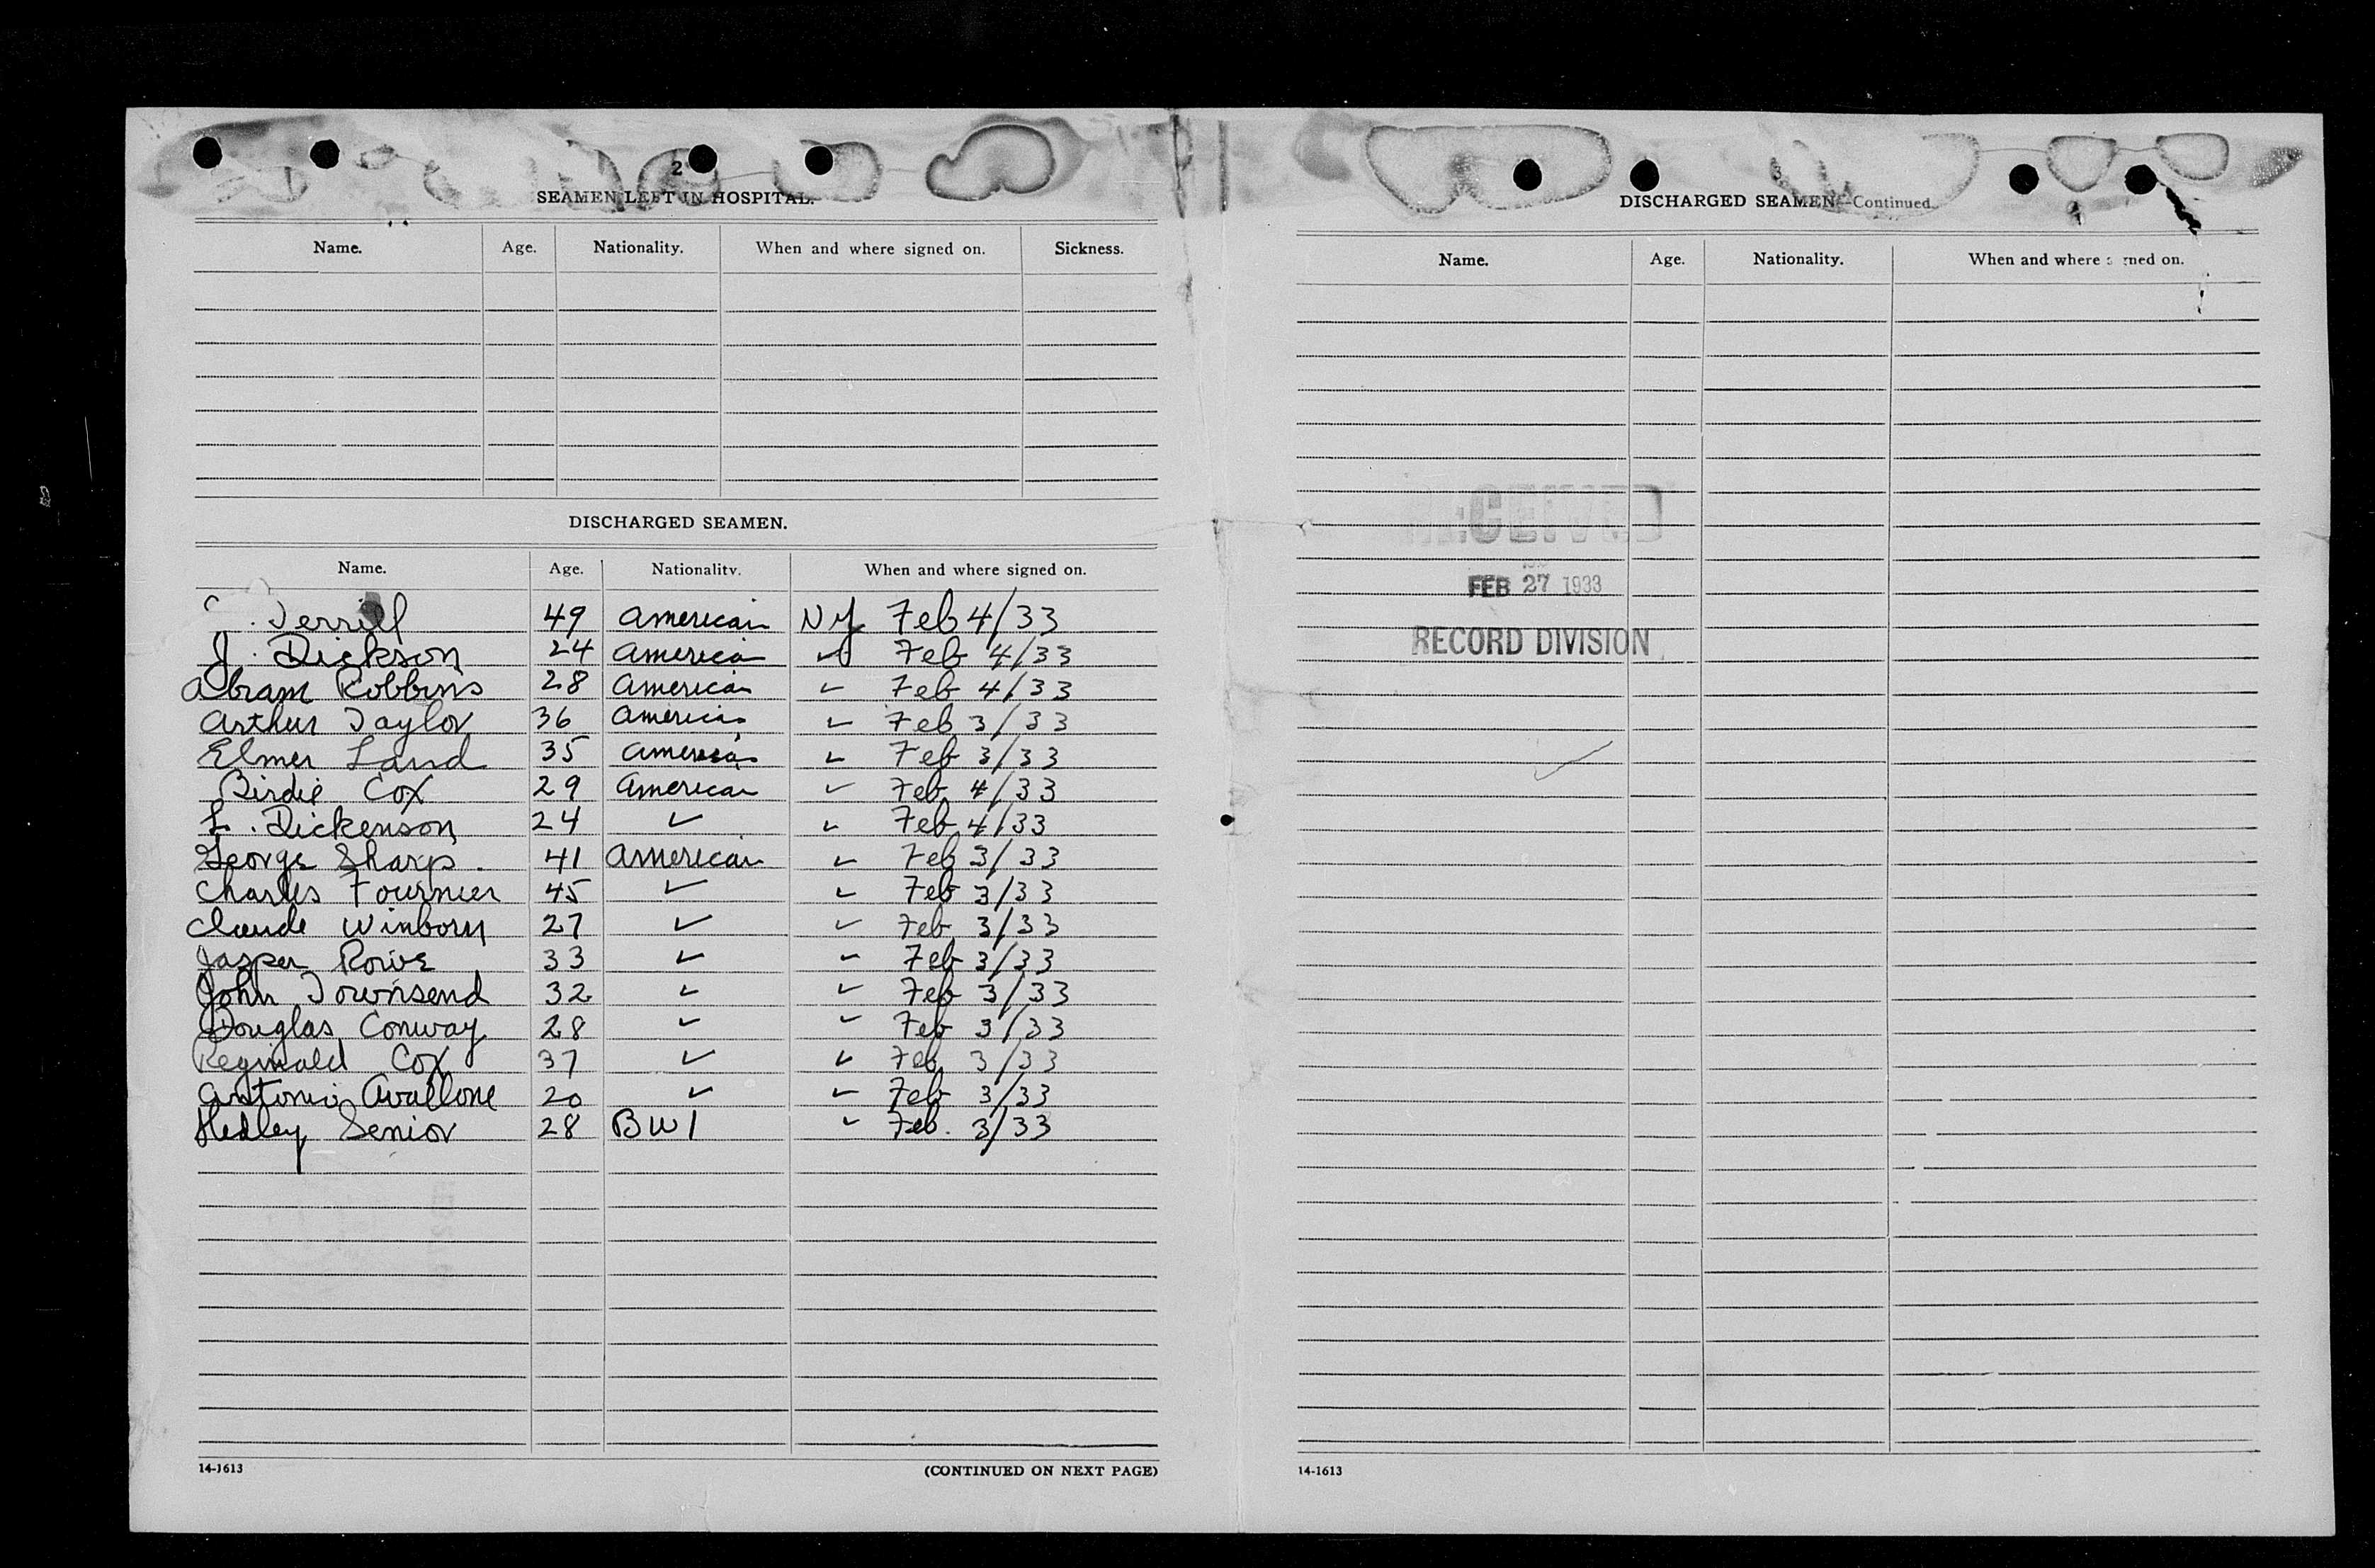 2
SEAMEN LEFT IN HOSPITAL.
Name. Age. Nationality. When and where signed on. Sickness.
DISCHARGED SEAMEN.
Name. Age. Nationality. When and where signed on.
Terrill 49 American NY Feb 4/33
J. Dickson 24 America ✓ Feb 4/33
Abram Robbins 28 American ✓ Feb 4/33
Arthur Taylor 36 American ✓ Feb 3/33
Elmer Land 35 American ✓ Feb 3/33
Birdie Cox 29 American ✓ Feb 4/33
L. Dickenson 24 ✓ ✓ Feb 4/33
George Sharp. 41 American ✓ Feb 3/33
Charles Fournier 45 ✓ ✓ Feb 3/33
Claude Winborn 27 ✓ ✓ Feb 3/33
Jasper Rowe 33 ✓ ✓ Feb 3/33
John Townsend 32 ✓ ✓ Feb 3/33
Douglas Conway 28 ✓ ✓ Feb 3/33
Reginald Cox 37 ✓ ✓ Feb 3/33
Antonio Avallone 20 ✓ ✓ Feb 3/33
Hedley Senior 28 BWI ✓ Feb. 3/33
14-1613 (CONTINUED ON NEXT PAGE)
3
DISCHARGED SEAMEN—Continued
Name. Age. Nationality. When and where signed on.
RECEIVED
FEB 27 1933
RECORD DIVISION
14-1613